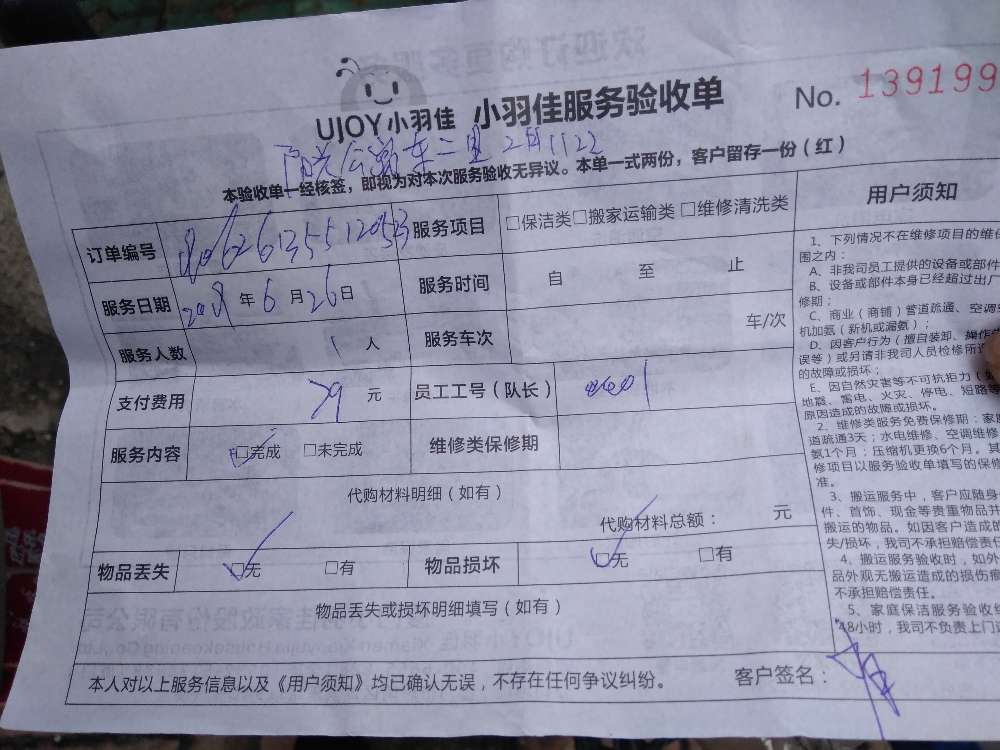 UJOY小羽佳 小羽佳服务验收单 No. 139199
本验收单一经核签，即视为对本次服务验收无异议。本单一式两份，客户留存一份（红）
订单编号 服务项目 □保洁类□搬家运输类 □维修清洗类
服务日期 2018年6月26日 服务时间 自 至 止
服务人数 1 人 服务车次 车/次
支付费用 79 元 员工工号（队长）
服务内容 □完成 □未完成 维修类保修期
代购材料明细（如有）
代购材料总额： 元
物品丢失 □无 □有 物品损坏 □无 □有
物品丢失或损坏明细填写（如有）
本人对以上服务信息以及《用户须知》均已确认无误，不存在任何争议纠纷。 客户签名：
用户须知
1、下列情况不在维修项目的维
围之内：
A、非我司员工提供的设备或部件
B、设备或部件本身已经超过出厂
修期；
C、商业（商铺）管道疏通、空调
机加氨（新机或漏氨）；
D、因客户行为（擅自装卸、操作
误等）或另请非我司人员检修所
的故障或损坏；
E、因自然灾害等不可抗拒力（
地震、雷电、火灾、停电、短路等
原因造成的故障或损坏。
2、维修类服务免费保修期：家
道疏通3天；水电维修、空调维修
氨1个月；压缩机更换6个月。其
修项目以服务验收单填写的保修
准。
3、搬运服务中，客户应随身
件、首饰、现金等贵重物品并
搬运的物品。如因客户造成的
失/损坏，我司不承担赔偿责任
4、搬运服务验收时，如外
品外观无搬运造成的损伤痕
不承担赔偿责任。
5、家庭保洁服务验收
48小时，我司不负责上门